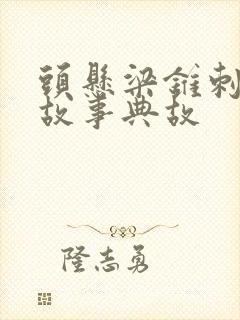 頭懸梁錐刺
故事典故
隆志勇